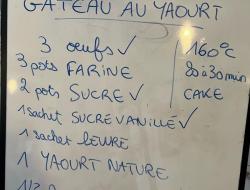 GATEAU AU YAOURT
3 œufs ✓
3 pots FARINE
2 pots SUCRE ✓
1 sachet SUCRE VANILLÉ ✓
1 sachet LEVURE
1 YAOURT NATURE
1/2
160°C
20 à 30 min
CAKE